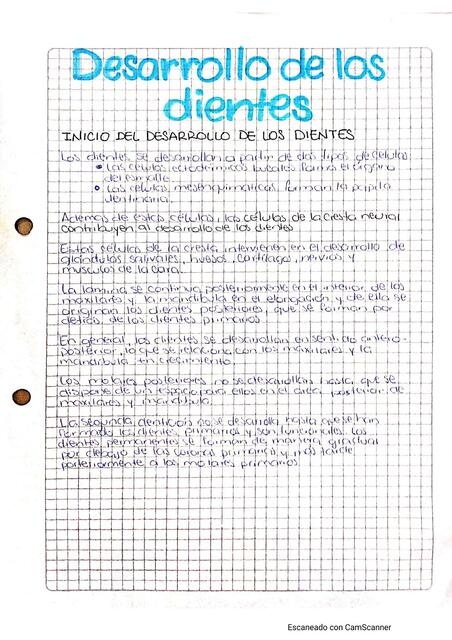 Desarrollo de los
dientes
INICIO DEL DESARROLLO DE LOS DIENTES
Los dientes se desarrollan a partir de dos tipos de células:
Las células ectodérmicas bucales forman el órgano
del esmalte.
Las células mesenquimáticas forman la papila
dentinaria.
Además de estas células, las células de la cresta neural
contribuyen al desarrollo de los dientes
Estas células de la cresta intervienen en el desarrollo de
glándulas salivales, huesos, cartílagos, nervios y
músculos de la cara.
La lámina se continua posteriormente en el interior de los
maxilares y la mandíbula en el elongación y de ella se
originan los dientes posteriores, que se forman por
detrás de los dientes primarios.
En general, los dientes se desarrollan en sentido antero-
posterior, lo que se relaciona con los maxilares y la
mandíbula en crecimiento.
Los molares posteriores no se desarrollan hasta que se
dispone de un espacio para ellos en el área posterior de
maxilares y mandíbula.
La segunda dentición no se desarrolla hasta que se han
formado los dientes primarios y son funcionales. Los
dientes permanentes se forman de manera gradual
por debajo de las coronas primarias y más tarde
posteriormente a los molares primarios
Escaneado con CamScanner